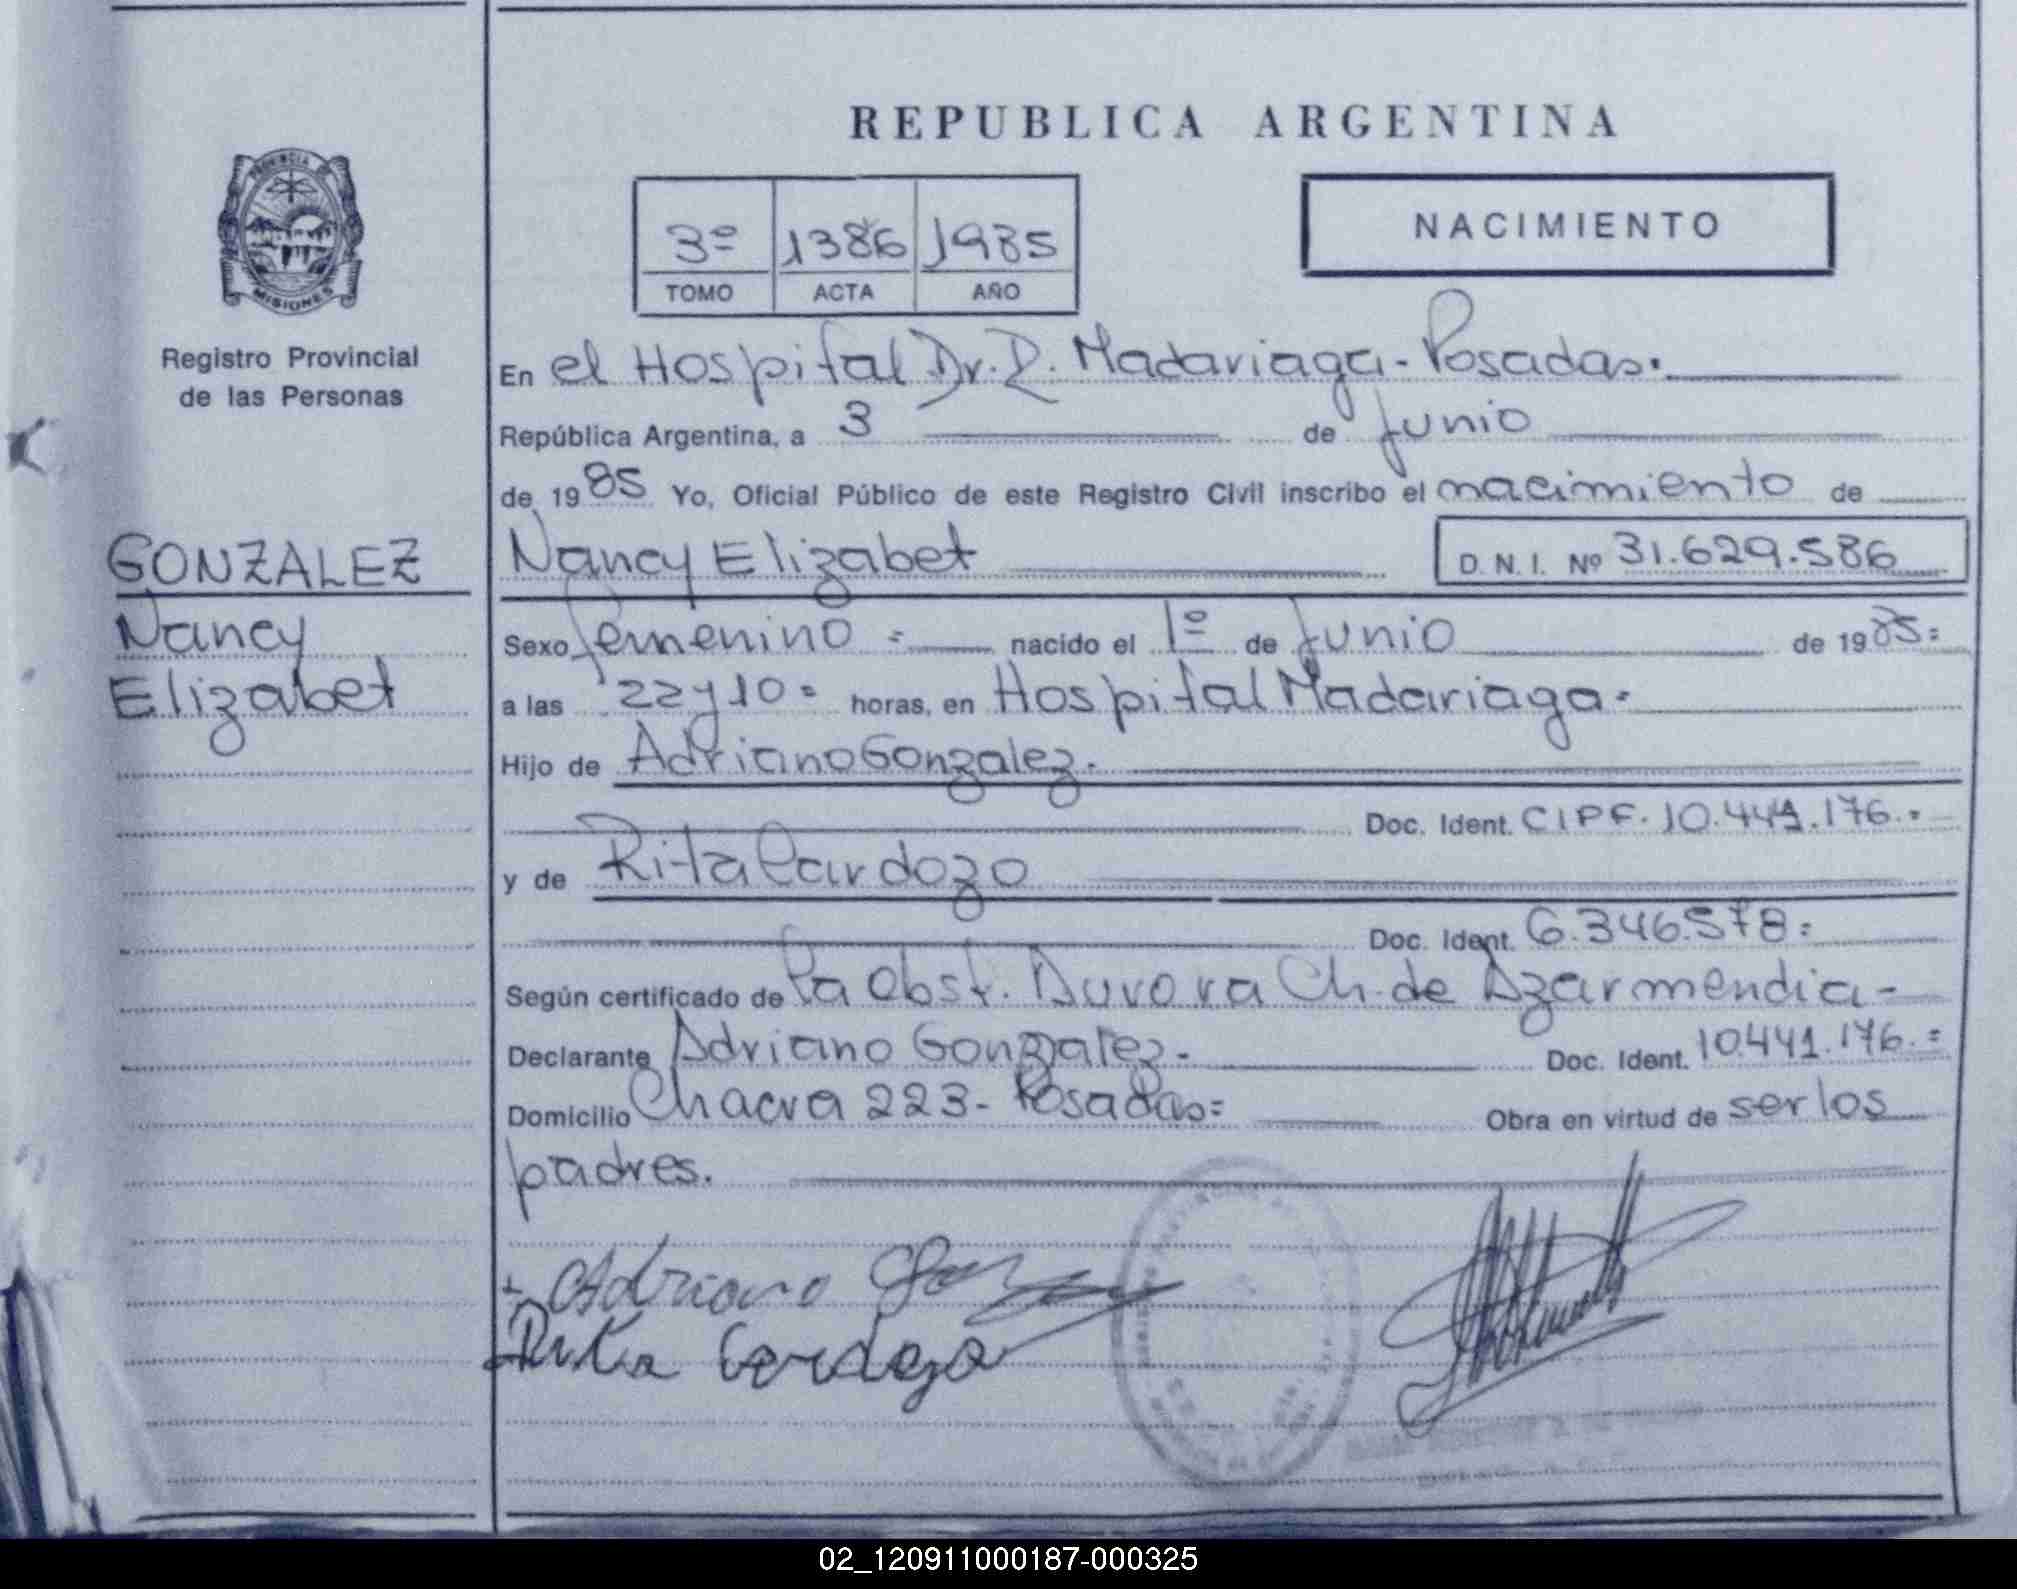 REPUBLICA ARGENTINA
PROVINCIA DE
MISIONES
Registro Provincial
de las Personas
3º 1386 1985
TOMO ACTA AÑO
NACIMIENTO
En el Hospital Dr. R. Madariaga - Posadas.
República Argentina, a 3 de Junio
de 1985 Yo, Oficial Público de este Registro Civil inscribo el nacimiento de
GONZALEZ
Nancy
Elizabet
Nancy Elizabet D. N. I. Nº 31.629.586
Sexo femenino = nacido el 1º de Junio de 1985=
a las 22 y 10= horas, en Hospital Madariaga=
Hijo de Adriano Gonzalez.
Doc. Ident. CIPF. 10.441.176.=
y de Rita Cardozo
Doc. Ident. 6.346.578=
Según certificado de la obst. Aurora Ch. de Azarmendia-
Declarante Adriano Gonzalez- Doc. Ident. 10.441.176.=
Domicilio Chacra 223- Posadas= Obra en virtud de ser los
padres.
Adriano
Rita Cardozo
02_120911000187-000325